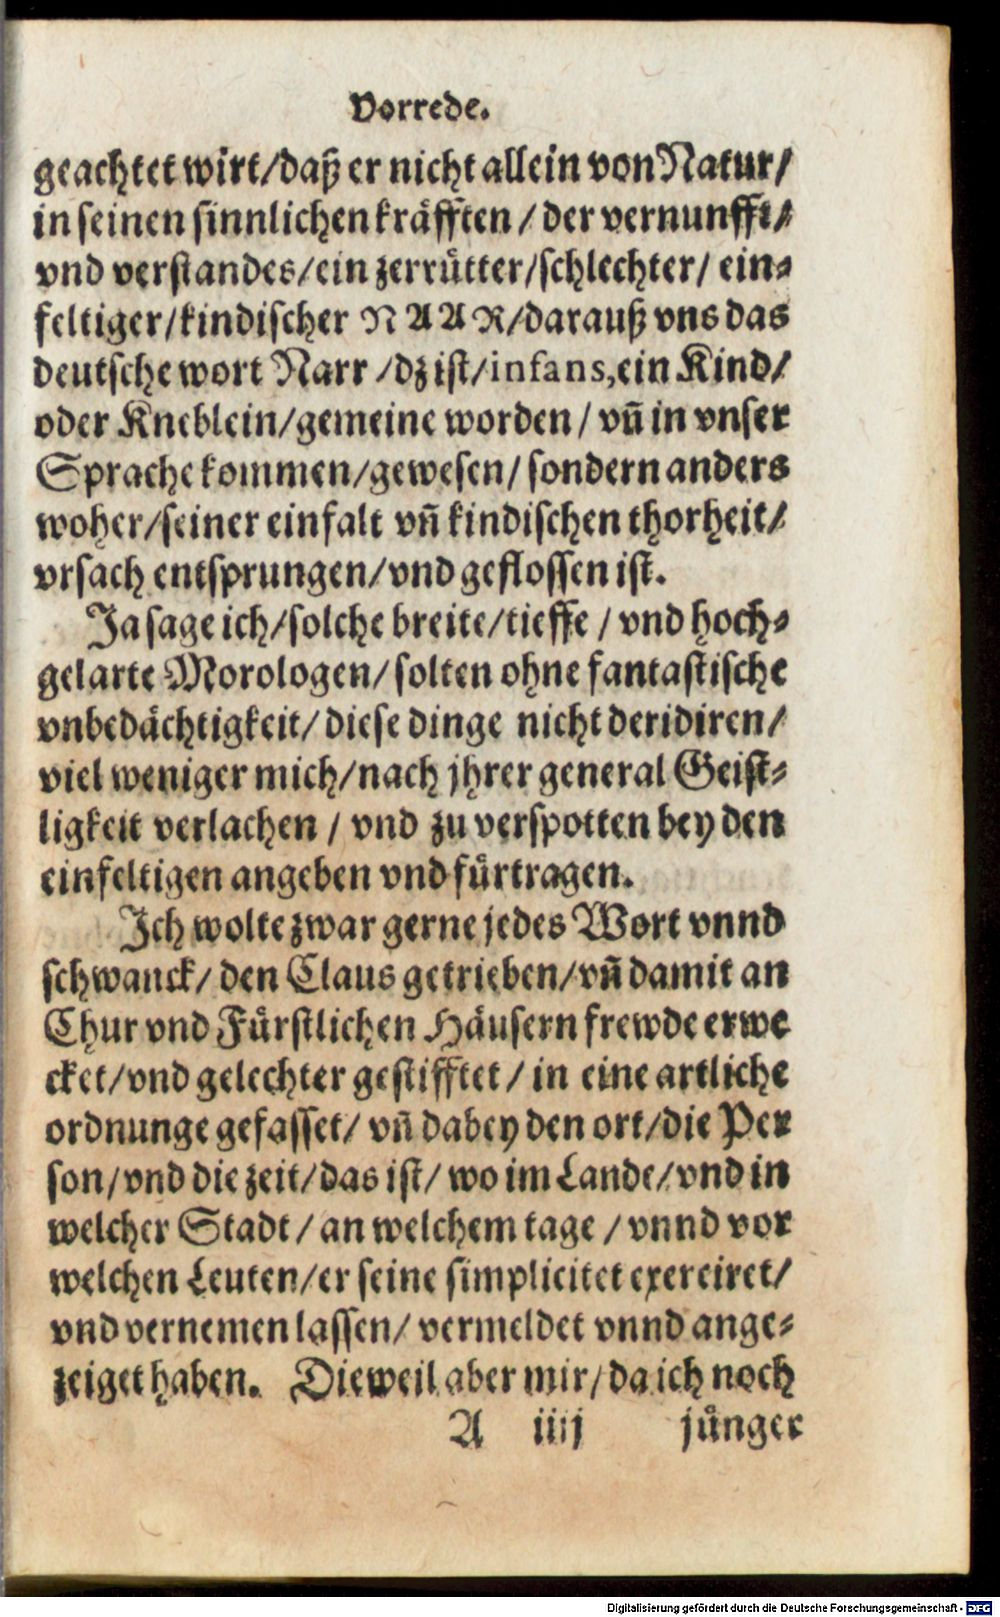 Vorrede.
geachtet wirt/daß er nicht allein von Natur/
in seinen sinnlichen kräfften / der vernunfft/
vnd verstandes/ein zerrütter/schlechter/ ein⸗
feltiger/kindischer NAAR/darauß vns das
deutsche wort Narr /dz ist/infans,ein Kind/
oder Kneblein/gemeine worden / vñ in vnser
Sprache kommen/gewesen/ sondern anders
woher/seiner einfalt vñ kindischen thorheit/
vrsach entsprungen/vnd geflossen ist.
Ja sage ich/solche breite/tieffe / vnd hoch⸗
gelarte Morologen/ solten ohne fantastische
vnbedächtigkeit/ diese dinge nicht deridiren/
viel weniger mich/nach jhrer general Geist⸗
ligkeit verlachen / vnd zu verspotten bey den
einfeltigen angeben vnd fürtragen.
Ich wolte zwar gerne jedes Wort vnnd
schwanck/ den Claus getrieben/vñ damit an
Chur vnd Fürstlichen Häusern frewde erwe
cket/vnd gelechter gestifftet / in eine artliche
ordnunge gefasset/ vñ dabey den ort/die Per
son/vnd die zeit/das ist/ wo im Lande/vnd in
welcher Stadt / an welchem tage / vnnd vor
welchen Leuten/er seine simplicitet exerciret/
vnd vernemen lassen/ vermeldet vnnd ange⸗
zeiget haben. Dieweil aber mir/da ich noch
A iiij jünger
Digitalisierung gefördert durch die Deutsche Forschungsgemeinschaft - DFG